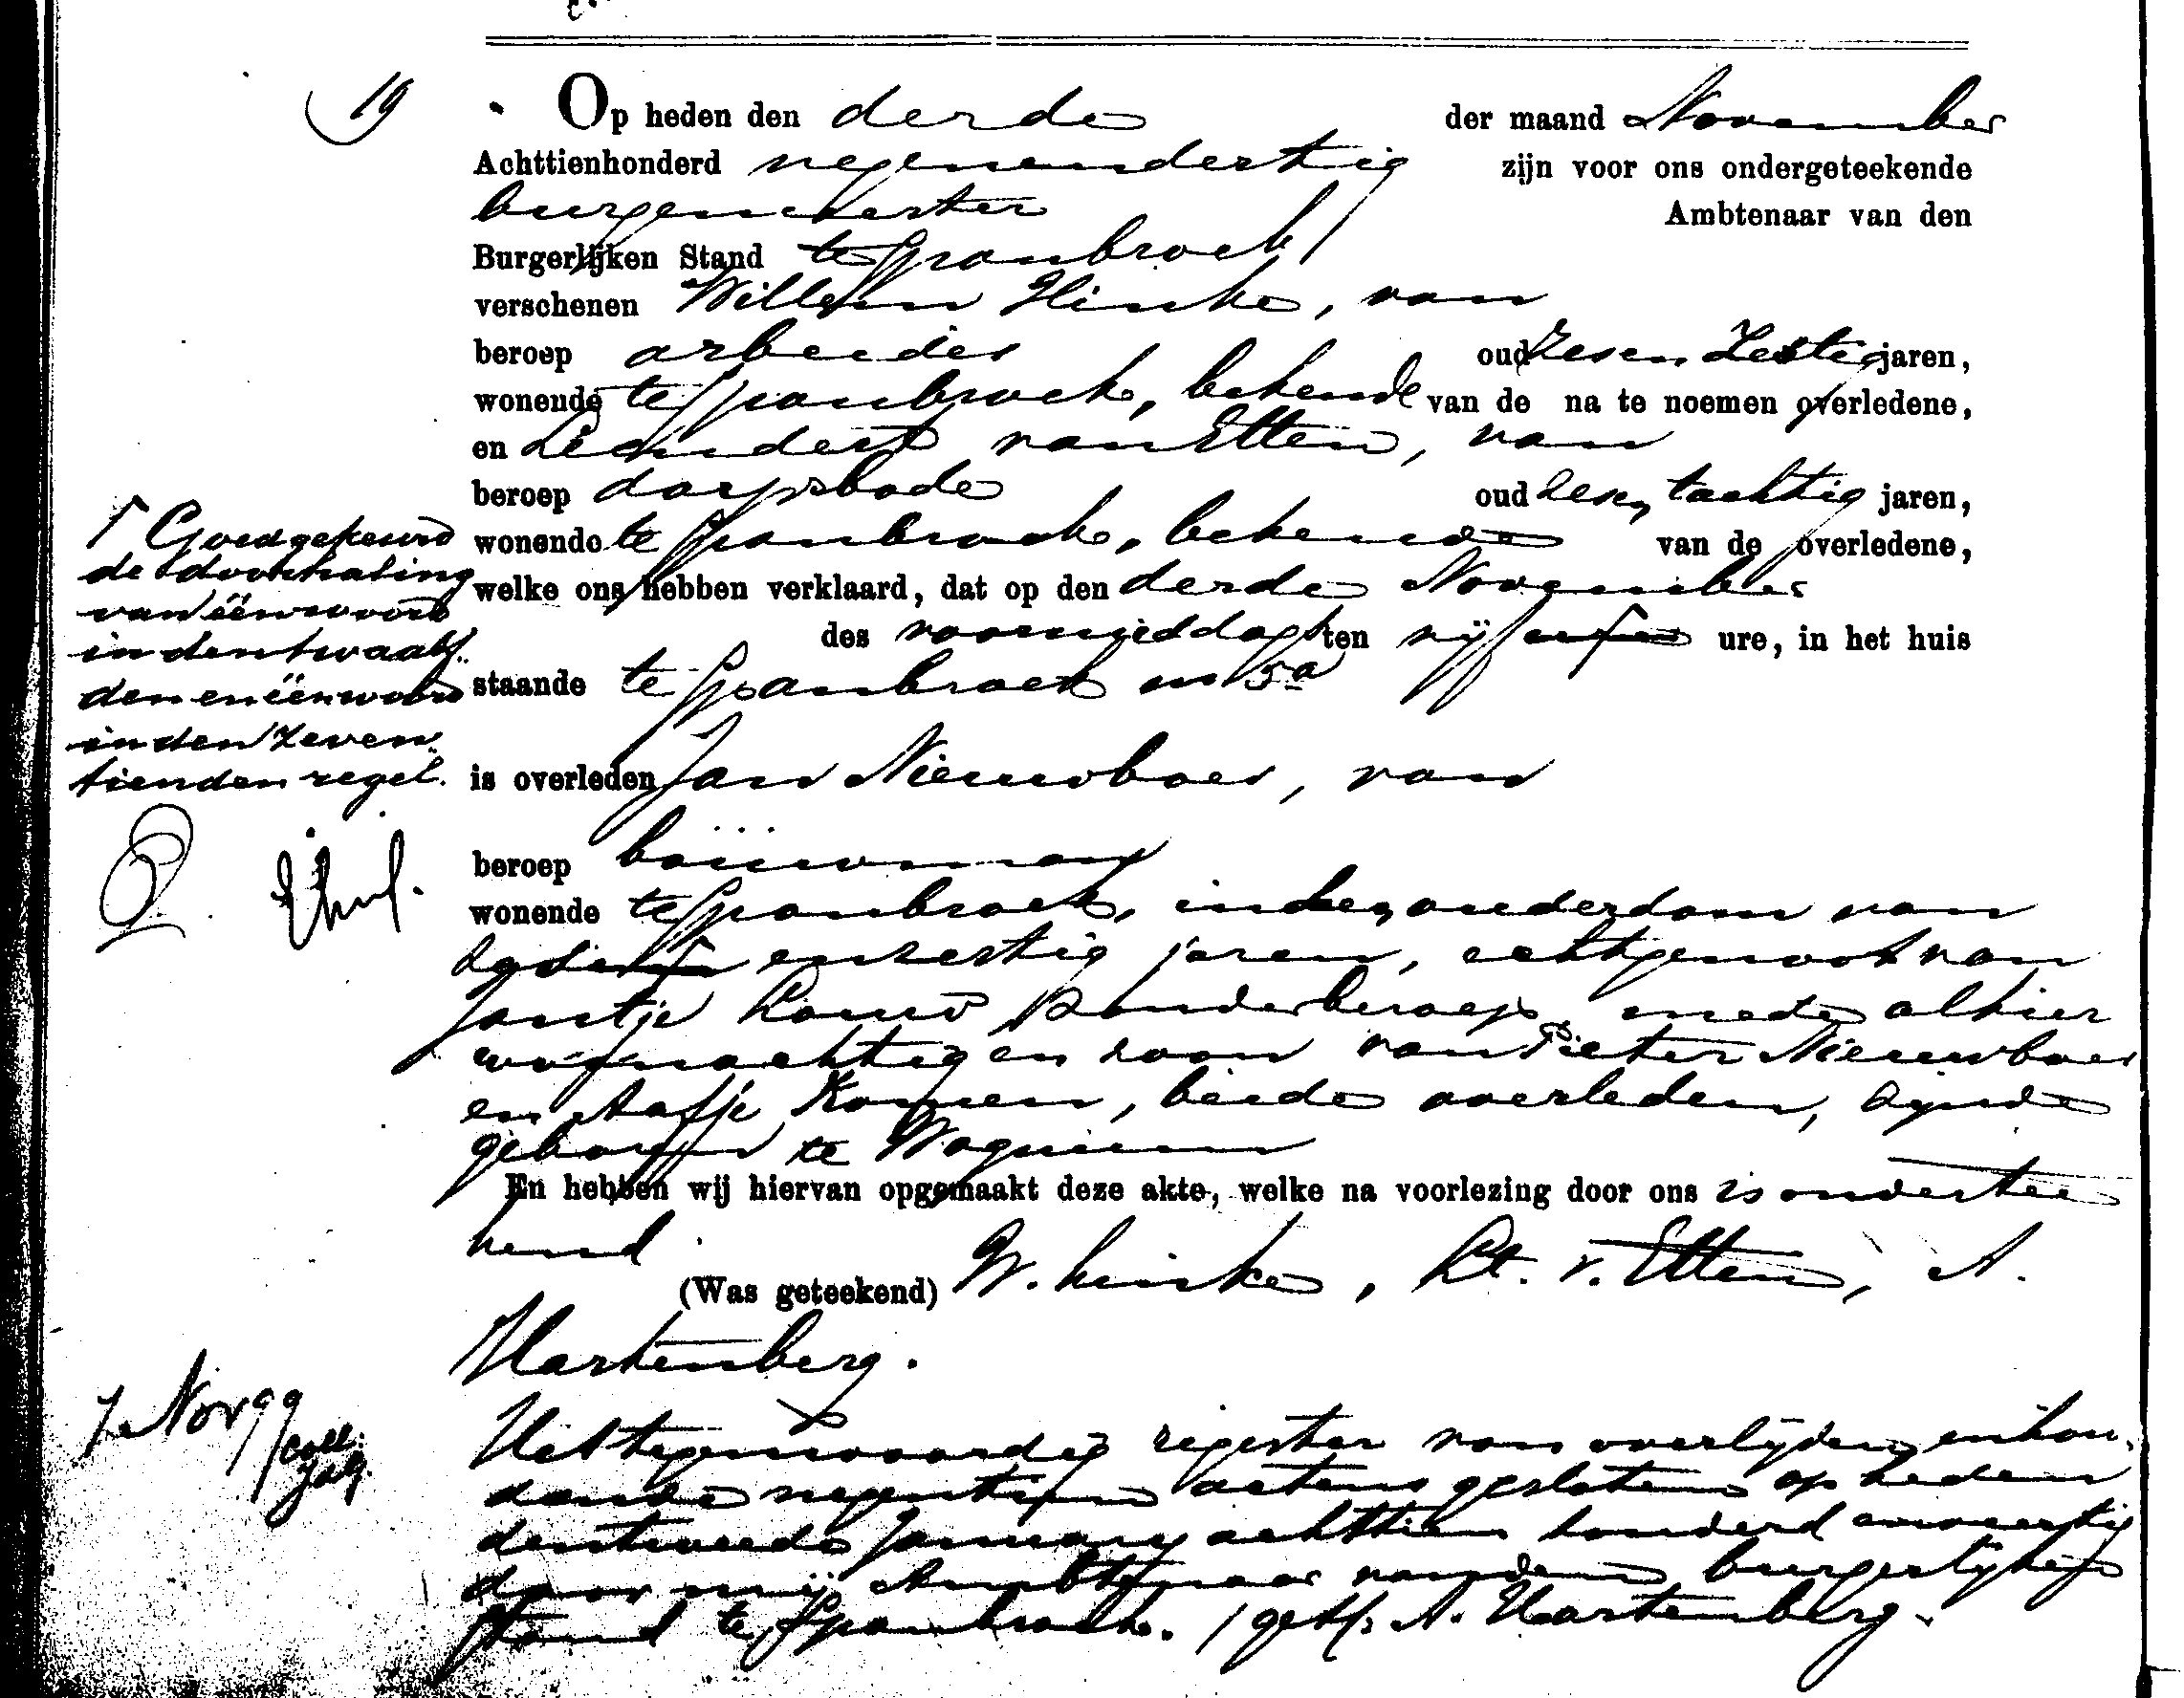 19
Op heden den derde der maand November
Achttienhonderd negenendertig zijn voor ons ondergeteekende
burgemeester Ambtenaar van den
Burgerlijken Stand te Spanbroek
verschenen Willem Hinke, van
beroep arbeider oud zesenzestig jaren,
wonende te Spanbroek, bekende van de na te noemen overledene,
en Leendert van Etten, van
beroep dorpsbode oud zesentachtig jaren,
wonende te Spanbroek, bekende van de overledene,
welke ons hebben verklaard, dat op den derde November
des voormiddags ten vijf ure, in het huis
staande te Spanbroek no 5a
is overleden Jan Nieuwboer, van
beroep bouwman
wonende te Spanbroek, in den ouderdom van
enzestig jaren, echtgenoot van
Jantje zonder beroep mede alhier
woonachtig en zoon van Pieter Nieuwboer
en Aafje Komen, beide overleden, zijnde
geboren te Wognum
En hebben wij hiervan opgemaakt deze akte, welke na voorlezing door ons is ondertee
kend
(Was geteekend) W. Hinke, Lt. v. Etten, A.
Hartenberg.
Het tegenwoordig register van overlijden, inhou-
dende negentien actens gesloten op heden
den tweede January achttien honderd en veertig
door mij Ambtenaar van den burgerlijken
stand te Spanbroek. /get/: A. Hartenberg.
Γ Goedgekeurd
de doorhaling
van één woord
in den twaalf-
den en één woord
in den zeven-
tienden regel.
7 Nov 99
coll: